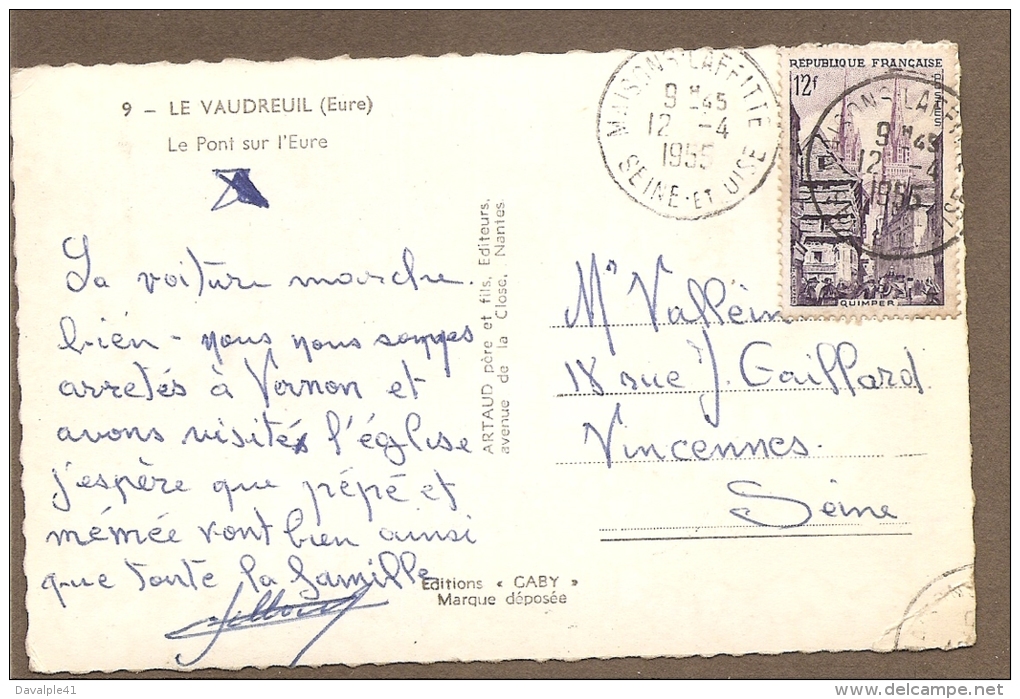 9 — LE VAUDREUIL (Eure)
Le Pont sur l'Eure
La voiture marche
bien - nous nous sommes
arretés à Vernon et
avons visités l'église
j'espère que pépé et
mémée vont bien ainsi
que toute la famille
ARTAUD père et fils, Editeurs.
avenue de la Close, Nantes.
Editions « GABY »
Marque déposée
MAISONS-LAFFITTE
9 H 45
12 -4
1955
SEINE-ET-OISE
RÉPUBLIQUE FRANÇAISE
12f
POSTES
QUIMPER
MAISONS-LAFFITTE
9 H 45
12 -4
1955
Mr Vallein
18 rue J. Gaillard
Vincennes.
Seine
Davalple41
www.delcampe.net